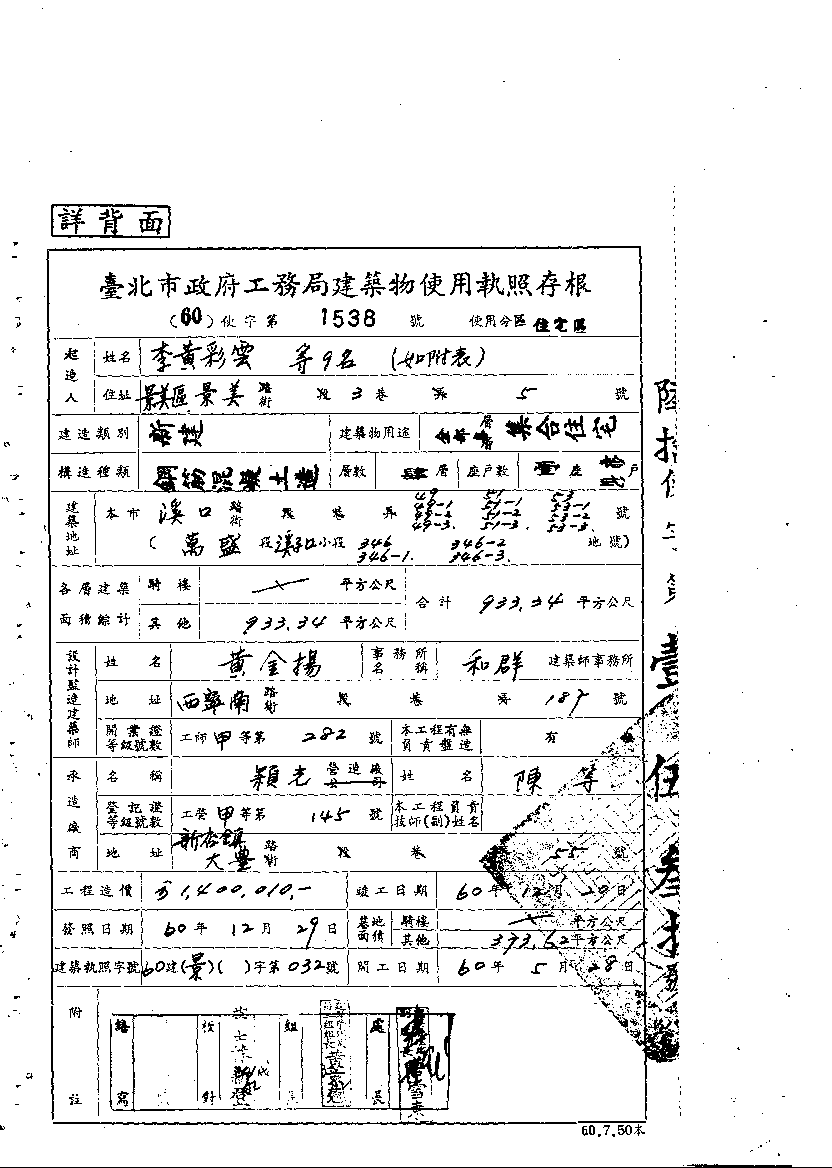 詳背面
臺北市政府工務局建築物使用執照存根
(60)使字第 1538 號 使用分區 住宅區
起造人 姓名 李黃彩雲 等9名 (如附表)
住址 景美區景美 路街 段 3 巷 弄 5 號
建造類別 新建 建築物用途 全部 層層 集合住宅
構造種類 鋼筋混凝土造 層數 肆 層 座戶數 壹 座 戶
建築地址 本市 溪口 路街 段 巷 弄 49 49-1 49-2 49-3. 51 51-1 51-2 51-3. 53 53-1 53-2 53-3. 號
(萬盛 段 溪子口 小段 346 346-1. 346-2 346-3. 地號)
各層建築面積綜計 騎樓 平方公尺 合計 933.34 平方公尺
其他 933.34 平方公尺
設計監造建築師 姓名 黃金揚 事務所名稱 和群 建築師事務所
地址 西寧南 路街 段 巷 弄 187 號
開業證等級號數 工師 甲 等第 282 號 本工程有無負責監造 有 無
承造廠商 名稱 穎光 營造廠公司 姓名 陳
登記證等級號數 工登 甲 等第 145 號 本工程負責技師(副)姓名
地址 新店鎮大豐 路街 段 巷 55 號
工程造價 1,400,010,- 竣工日期 60年12月20日
發照日期 60年12月29日 基地面積 騎樓 平方公尺
其他 373.62 平方公尺
建築執照字號 60建(景)( )字第032號 開工日期 60年5月28日
附註 繕寫 校對 組長 處長
60.7.50本